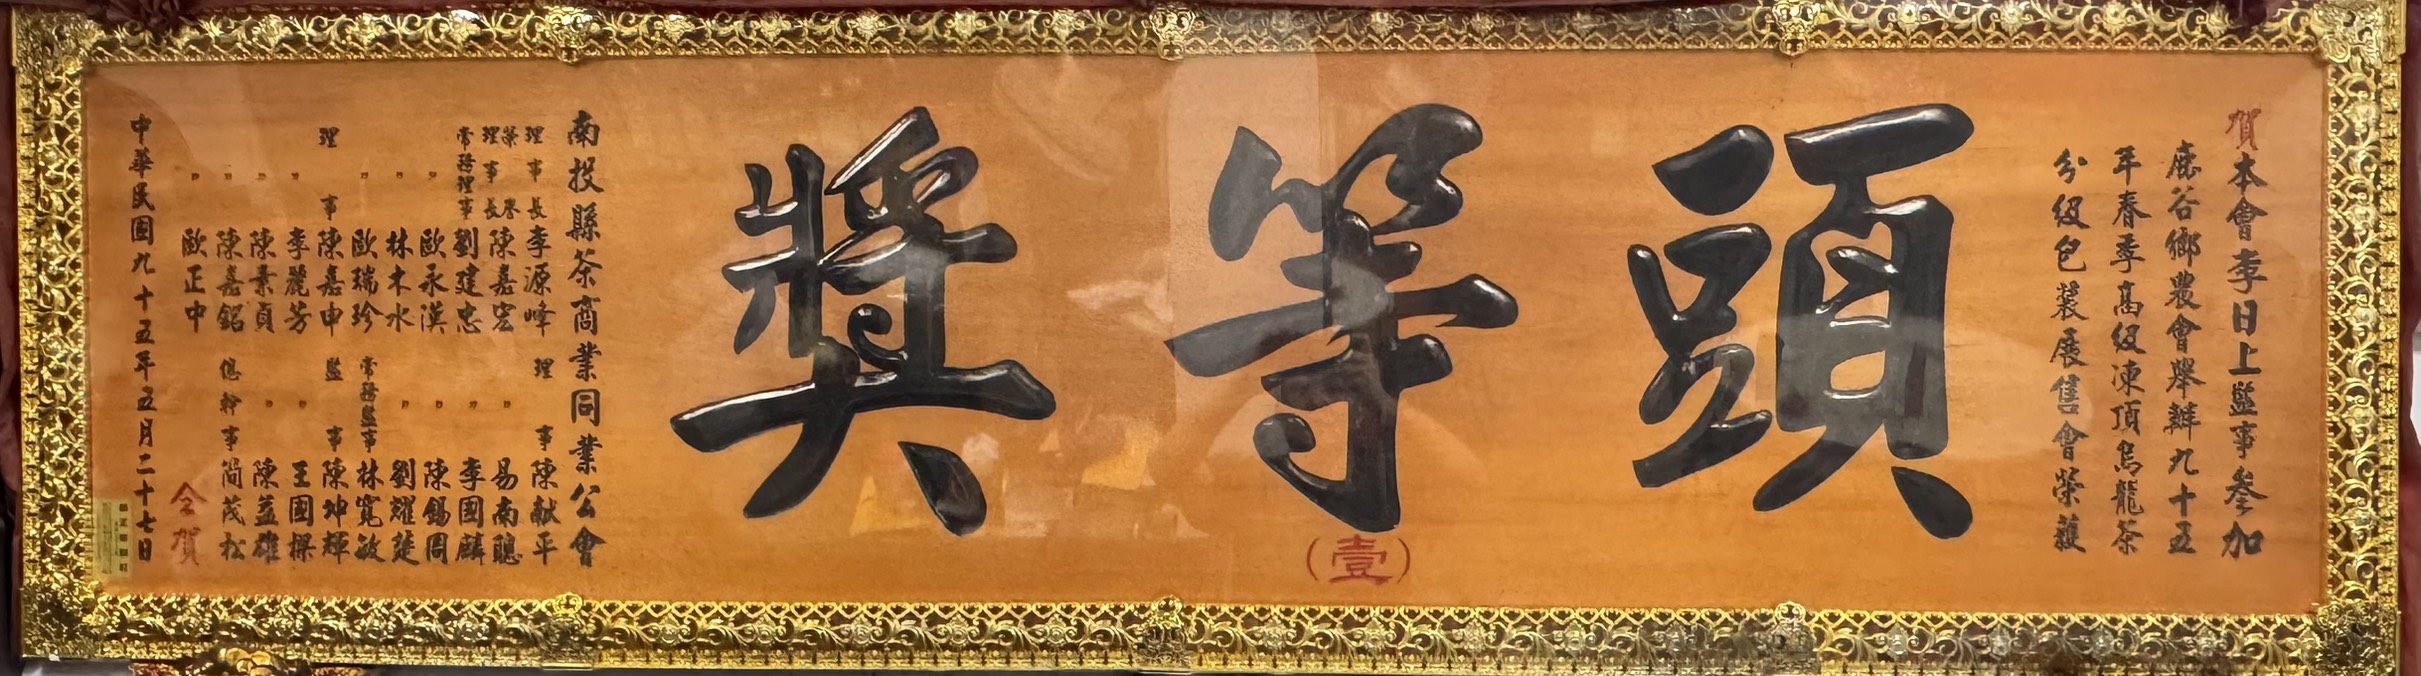 賀本會李日上監事叄加
鹿谷鄉農會舉辦九十五
年春季高級凍頂烏龍茶
分級包裝展售會榮獲
頭等獎
(壹)
南投縣茶商業同業公會
理事長李源峰
榮譽理事長陳嘉宏
常務理事劉建忠
〃歐永漢
〃林木水
〃歐瑞珍
理事陳嘉申
〃李麗芳
〃陳素貞
〃陳嘉銘
〃歐正中
理事陳献平
〃易南聰
〃李國麟
〃陳錫周
〃劉耀莛
常務監事林寬敏
監事陳坤輝
〃王國樑
〃陳益雄
總幹事簡茂松
仝賀
中華民國九十五年五月二十七日